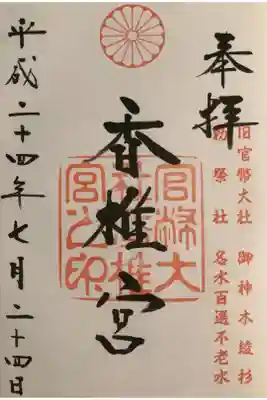 奉拝
旧官幣大社 御神木綾杉
勅祭社 名水百選不老水
香椎宮
官幣大
社香椎
宮之印
平成二十四年七月二十四日